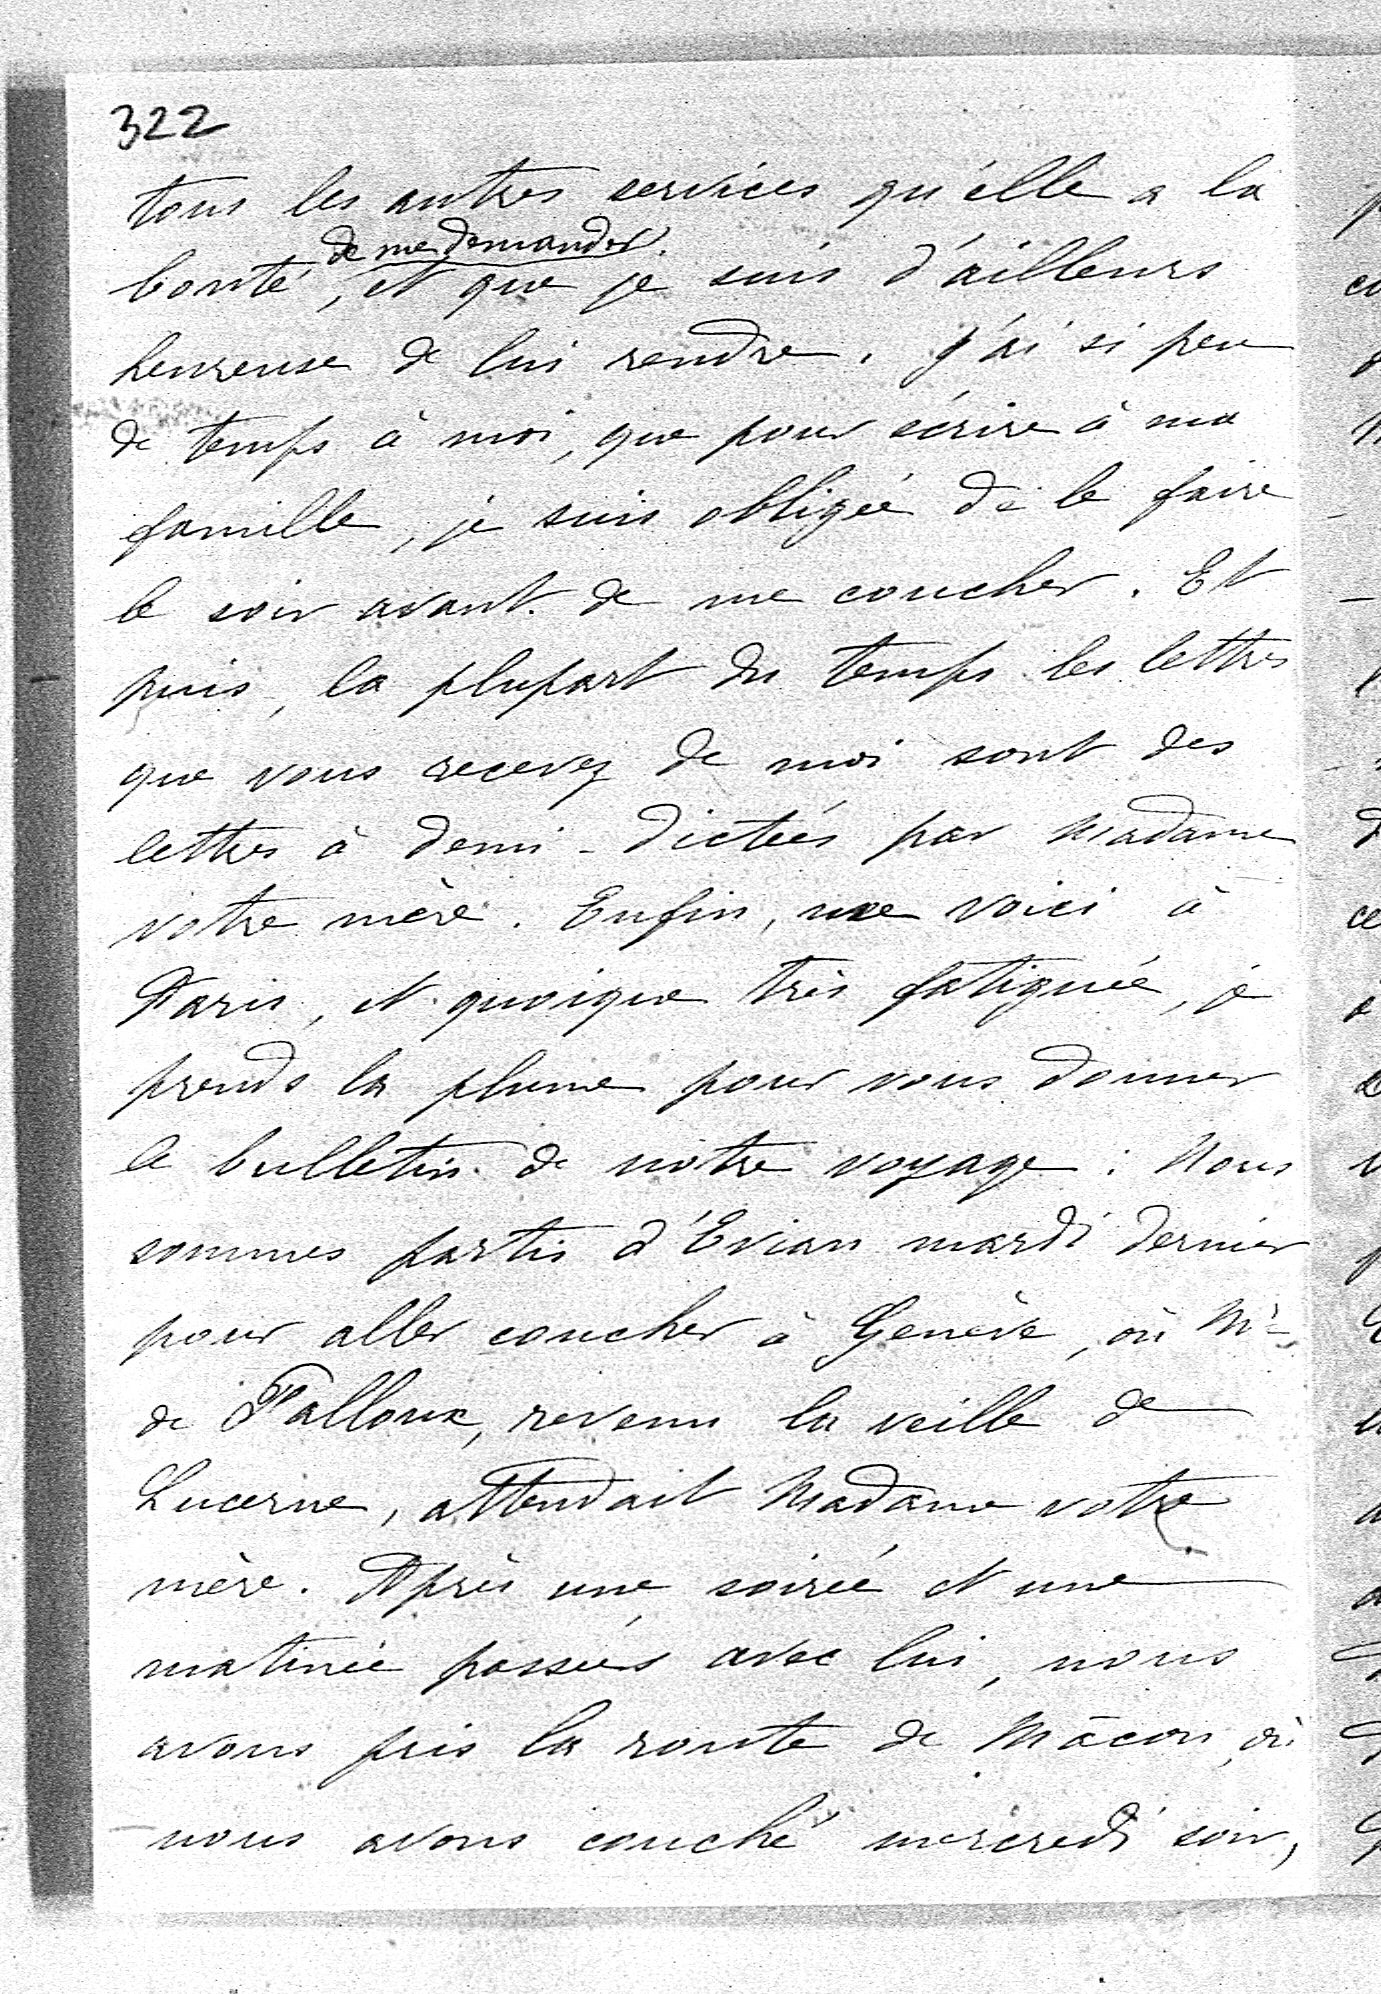 322
tous les autres services qu'elle a la
de me demander.
bonté, et que je suis d'ailleurs
heureuse de lui rendre. J'ai si peu
de temps à moi, que pour écrire à ma
famille, je suis obligée de le faire
le soir avant de me coucher. Et
puis, la plupart du temps les lettres
que vous recevez de moi sont des
lettres à demi-dictées par Madame
votre mère. Enfin, me voici à
Paris, et quoique très fatiguée, je
prends la plume pour vous donner
le bulletin de notre voyage : Nous
sommes partis d'Evian mardi dernier
pour aller coucher à Genève, où Mr
de Falloux, revenu la veille de
Lucerne, attendait Madame votre
mère. Après une soirée et une
matinée passées avec lui, nous
avons pris la route de Mâcon, où
nous avons couché mercredi soir,